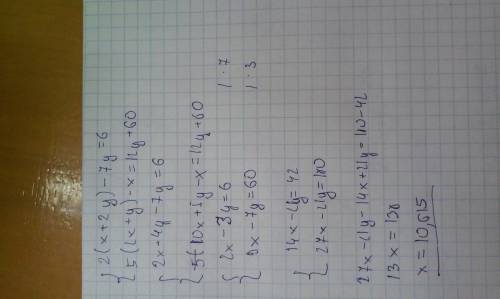 { 2(x+2y)-7y=6
{ 5(2x+y)-x=12y+60
{ 2x-4y-7y=6
{ 5+10x+5y-x=12y+60
{ 2x-3y=6 | ·7
{ 9x-7y=60 | ·3
{ 14x-21y=42
{ 27x-21y=180
27x-21y-14x+21y=180-42
13x=138
x=10,615